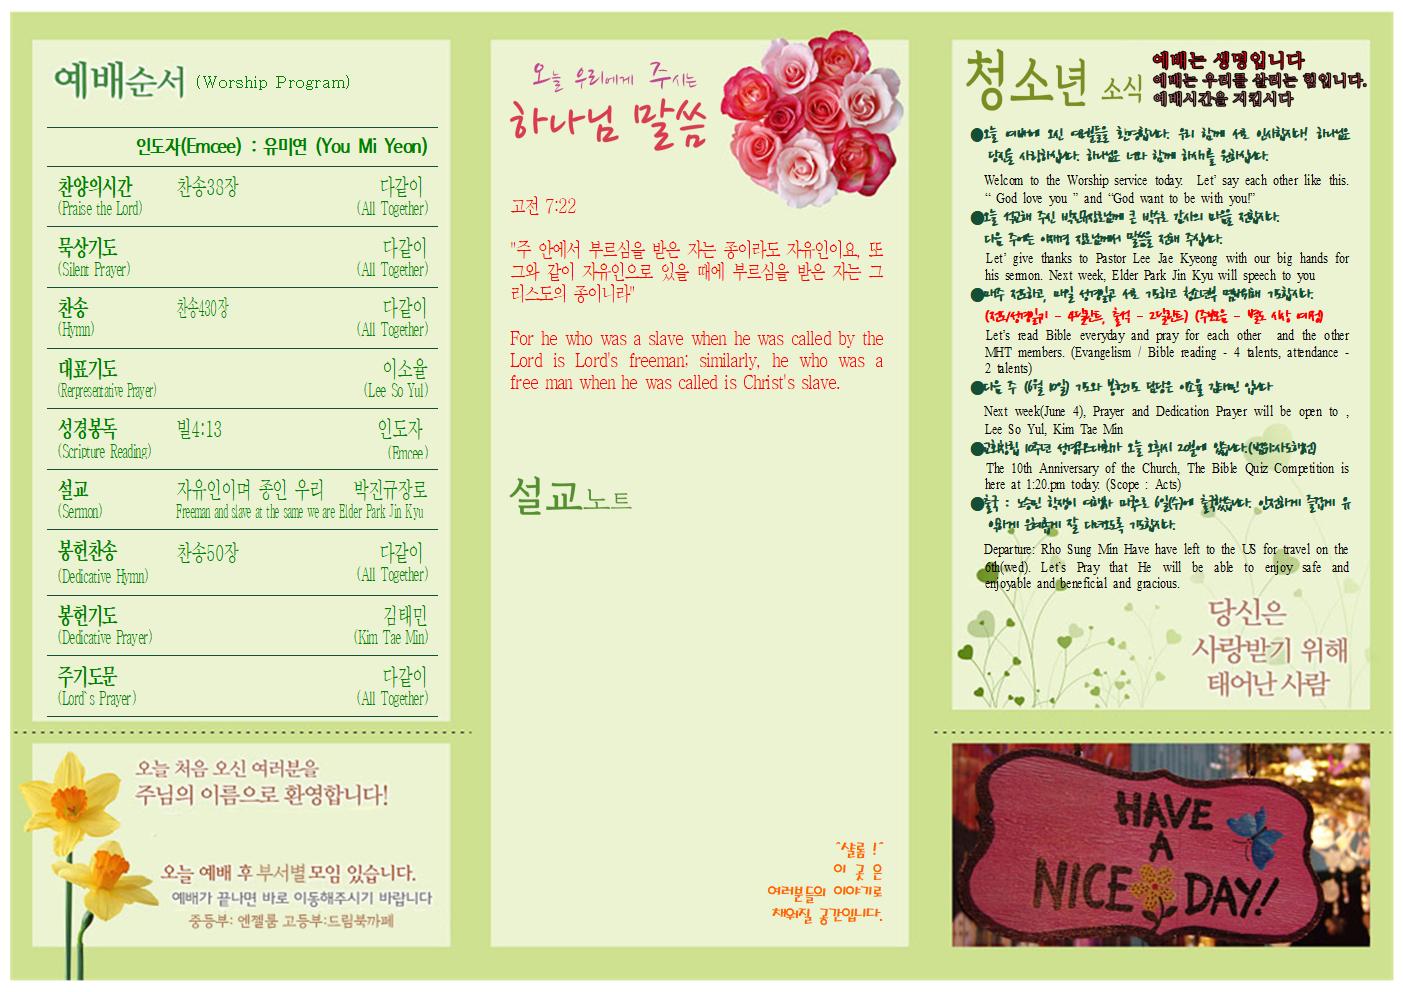 예배순서 (Worship Program)
인도자(Emcee) : 유미연 (You Mi Yeon)
찬양의시간 찬송38장 다같이
(Praise the Lord) (All Together)
묵상기도 다같이
(Silent Prayer) (All Together)
찬송 찬송430장 다같이
(Hymn) (All Together)
대표기도 이소율
(Rerpresentative Prayer) (Lee So Yul)
성경봉독 빌4:13 인도자
(Scripture Reading) (Emcee)
설교 자유인이며 종인 우리 박진규장로
(Sermon) Freeman and slave at the same we are Elder Park Jin Kyu
봉헌찬송 찬송50장 다같이
(Dedicative Hymn) (All Together)
봉헌기도 김태민
(Dedicative Prayer) (Kim Tae Min)
주기도문 다같이
(Lord`s Prayer) (All Together)
오늘 처음 오신 여러분을
주님의 이름으로 환영합니다!
오늘 예배 후 부서별 모임 있습니다.
예배가 끝나면 바로 이동해주시기 바랍니다
중등부: 엔젤룸 고등부:드림북까페
오늘 우리에게 주시는
하나님 말씀
고전 7:22
"주 안에서 부르심을 받은 자는 종이라도 자유인이요, 또
그와 같이 자유인으로 있을 때에 부르심을 받은 자는 그
리스도의 종이니라"
For he who was a slave when he was called by the
Lord is Lord's freeman; similarly, he who was a
free man when he was called is Christ's slave.
설교노트
"샬롬 !"
이 곳 은
여러분들의 이야기로
채워질 공간입니다.
청소년 소식
예배는 생명입니다
예배는 우리를 살리는 힘입니다.
예배시간을 지킵시다
●오늘 예배에 오신 여러분들을 환영합니다. 우리 함께 서로 인사합시다! 하나님은
당신을 사랑하십니다. 하나님은 너와 함께 하시기를 원하십니다.
Welcom to the Worship service today. Let' say each other like this.
“ God love you ” and “God want to be with you!”
●오늘 설교해 주신 박진규장로님께 큰 박수로 감사의 마음을 전합시다.
다음 주에는 이재경 전도님께서 말씀을 전해 주십니다.
Let' give thanks to Pastor Lee Jae Kyeong with our big hands for
his sermon. Next week, Elder Park Jin Kyu will speech to you
●매주 전도하고, 매일 성경읽고 서로 기도하고 청소년부 멤버위해 기도합시다.
(전도/성경읽기 - 4달란트, 출석 - 2달란트)
Let's read Bible everyday and pray for each other and the other
MHT members. (Evangelism / Bible reading - 4 talents, attendance -
2 talents)
●다음 주 기도와 봉헌기도 담당은 이소율 김태민 입니다
Next week(June 4), Prayer and Dedication Prayer will be open to ,
Lee So Yul, Kim Tae Min
●교회창립 10주년 성경퀴즈대회가 오늘 오후1시 20분에 있습니다.(범위:사도행전)
The 10th Anniversary of the Church, The Bible Quiz Competition is
here at 1:20.pm today. (Scope : Acts)
●출국 : 노승민 학생이 여행차 미국으로 6일(수)에 출국했습니다. 안전하게 즐겁게 유
익하게 은혜롭게 잘 다녀오도록 기도합시다.
Departure: Rho Sung Min Have have left to the US for travel on the
6th(wed). Let`s Pray that He will be able to enjoy safe and
enjoyable and beneficial and gracious.
당신은
사랑받기 위해
태어난 사람
HAVE
A
NICE DAY!